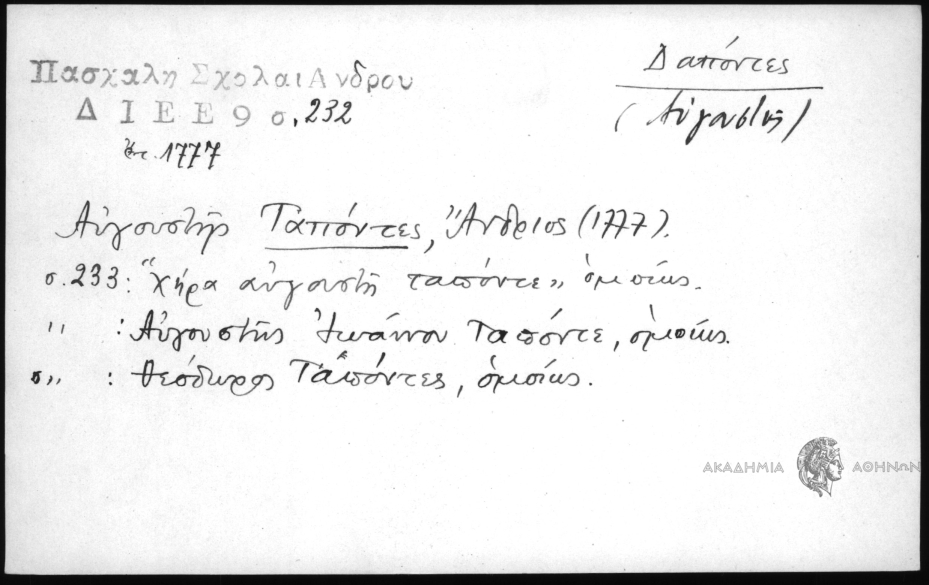 Πασχαλη Σχολαι Ανδρου
Δ Ι Ε Ε 9 σ. 232
ἔτ. 1777
Δαπόντες
(Αὐγουστῆς)
Αὐγουστῆς Ταπόντες, Ἄνδριος (1777).
σ. 233: "χήρα αὐγουστῆ ταπόντε" ὁμοίως.
" : Αὐγουστῆς Ἰωάννου Ταπόντε, ὁμοίως.
σ" : Θεόδωρος Ταπόντες, ὁμοίως.
ΑΚΑΔΗΜΙΑ ΑΘΗΝΩΝ